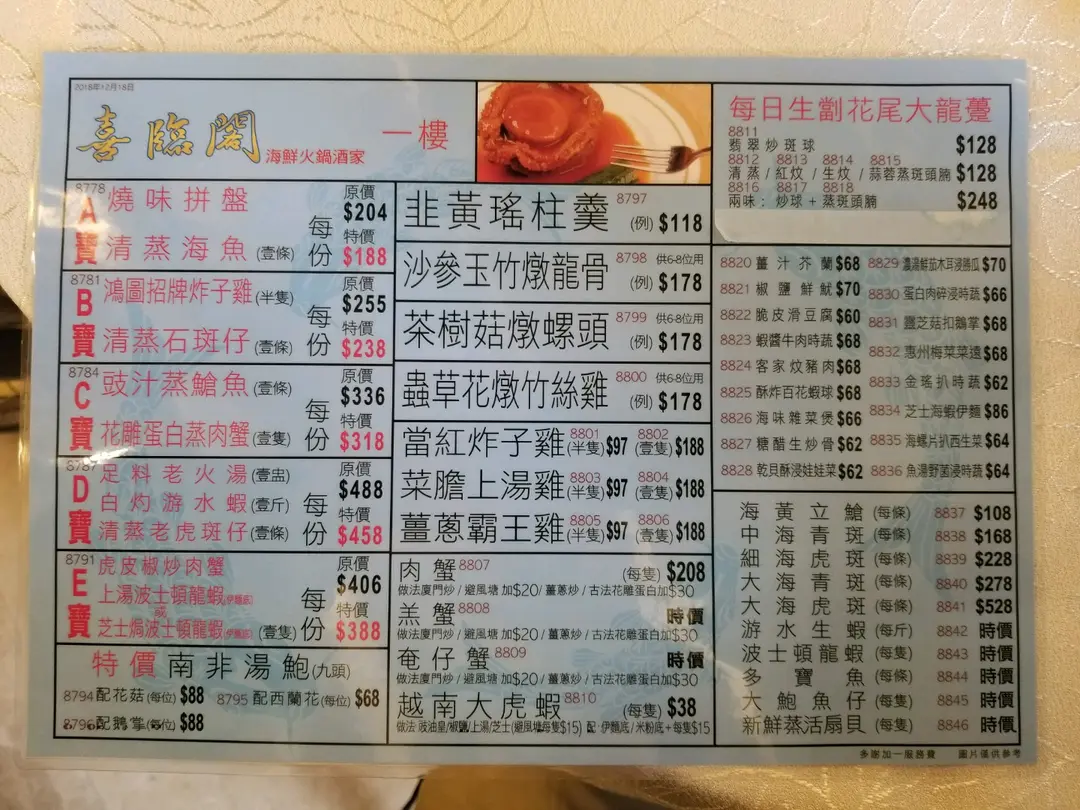 2018年12月18日
喜臨閣
海鮮火鍋酒家
一樓
8778
A寶
燒味拼盤
清蒸海魚(壹條)
每份
原價
$204
特價
$188
8781
B寶
鴻圖招牌炸子雞(半隻)
清蒸石斑仔(壹條)
每份
原價
$255
特價
$238
8784
C寶
豉汁蒸鯧魚(壹條)
花雕蛋白蒸肉蟹(壹隻)
每份
原價
$336
特價
$318
8787
D寶
足料老火湯(壹盅)
白灼游水蝦(壹斤)
清蒸老虎斑仔(壹條)
每份
原價
$488
特價
$458
8791
E寶
虎皮椒炒肉蟹
上湯波士頓龍蝦(伊麵底)
或
芝士焗波士頓龍蝦(伊麵底)(壹隻)
每份
原價
$406
特價
$388
特價南非湯鮑(九頭)
8794配花菇(每位)$88 8795配西蘭花(每位)$68
8796配鵝掌(每位)$88
韭黃瑤柱羹 8797 (例)$118
沙參玉竹燉龍骨 8798 供6-8位用 (例)$178
茶樹菇燉螺頭 8799 供6-8位用 (例)$178
蟲草花燉竹絲雞 8800 供6-8位用 (例)$178
當紅炸子雞 8801 (半隻)$97 8802 (壹隻)$188
菜膽上湯雞 8803 (半隻)$97 8804 (壹隻)$188
薑蔥霸王雞 8805 (半隻)$97 8806 (壹隻)$188
肉蟹 8807 (每隻)$208
做法廈門炒/避風塘 加$20/薑蔥炒/古法花雕蛋白加$30
羔蟹 8808 時價
做法廈門炒/避風塘 加$20/薑蔥炒/古法花雕蛋白加$30
奄仔蟹 8809 時價
做法廈門炒/避風塘 加$20/薑蔥炒/古法花雕蛋白加$30
越南大虎蝦 8810 (每隻)$38
做法:豉油皇/椒鹽/上湯/芝士(避風塘每隻$15) 配:伊麵底/米粉底+每隻$15
每日生劏花尾大龍躉
8811
翡翠炒斑球 $128
8812 8813 8814 8815
清蒸/紅炆/生炆/蒜蓉蒸斑頭腩 $128
8816 8817 8818
兩味:炒球+蒸斑頭腩 $248
8820 薑汁芥蘭 $68
8821 椒鹽鮮魷 $70
8822 脆皮滑豆腐 $60
8823 蝦醬牛肉時蔬 $68
8824 客家炆豬肉 $68
8825 酥炸百花蝦球 $68
8826 海味雜菜煲 $66
8827 糖醋生炒骨 $62
8828 乾貝酥浸娃娃菜 $62
8829 濃湯鮮茄木耳浸勝瓜 $70
8830 蛋白肉碎浸時蔬 $66
8831 靈芝菇扣鵝掌 $68
8832 惠州梅菜菜遠 $68
8833 金瑤扒時蔬 $62
8834 芝士海蝦伊麵 $86
8835 海螺片扒西生菜 $64
8836 魚湯野菌浸時蔬 $64
海黃立鯧(每條) 8837 $108
中海青斑(每條) 8838 $168
細海虎斑(每條) 8839 $228
大海青斑(每條) 8840 $278
大海虎斑(每條) 8841 $528
游水生蝦(每斤) 8842 時價
波士頓龍蝦(每隻) 8843 時價
多寶魚(每條) 8844 時價
大鮑魚仔(每隻) 8845 時價
新鮮蒸活扇貝(每隻) 8846 時價
多謝加一服務費 圖片僅供參考